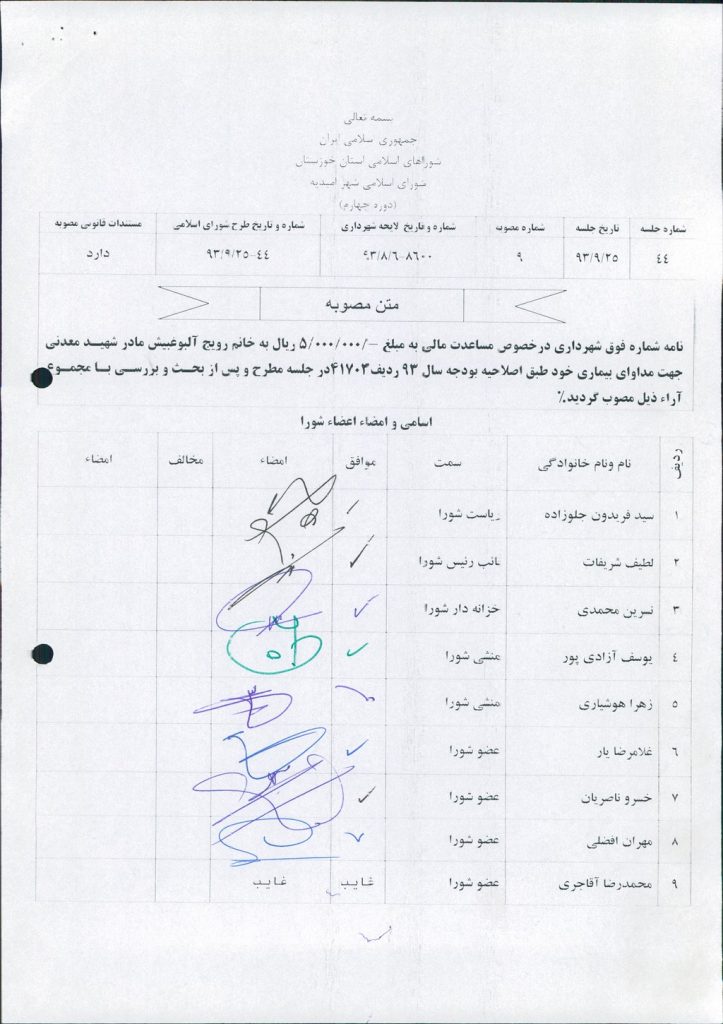 بسمه تعالی
جمهوری اسلامی ایران
شوراهای اسلامی استان خوزستان
شورای اسلامی شهر امیدیه
(دوره چهارم)
شماره جلسه تاریخ جلسه شماره مصوبه شماره و تاریخ لایحه شهرداری شماره و تاریخ طرح شورای اسلامی مستندات قانونی مصوبه
۴۴ ۹۳/۹/۲۵ ۹ ۹۳/۸/۶-۸۶۰۰ ۹۳/۹/۲۵-۴۴ دارد
متن مصوبه
نامه شماره فوق شهرداری درخصوص مساعدت مالی به مبلغ -/۵/۰۰۰/۰۰۰ ریال به خانم رویج آلبوغبیش مادر شهید معدنی
جهت مداوای بیماری خود طبق اصلاحیه بودجه سال ۹۳ ردیف۴۱۷۰۳در جلسه مطرح و پس از بحث و بررسی با مجموع
آراء ذیل مصوب گردید.%
اسامی و امضاء اعضاء شورا
ردیف نام ونام خانوادگی سمت موافق امضاء مخالف امضاء
۱ سید فریدون جلوزاده ریاست شورا
۲ لطیف شریفات نائب رئیس شورا
۳ نسرین محمدی خزانه دار شورا
۴ یوسف آزادی پور منشی شورا
۵ زهرا هوشیاری منشی شورا
۶ غلامرضا یار عضو شورا
۷ خسرو ناصریان عضو شورا
۸ مهران افضلی عضو شورا
۹ محمدرضا آقاجری عضو شورا غایب غایب